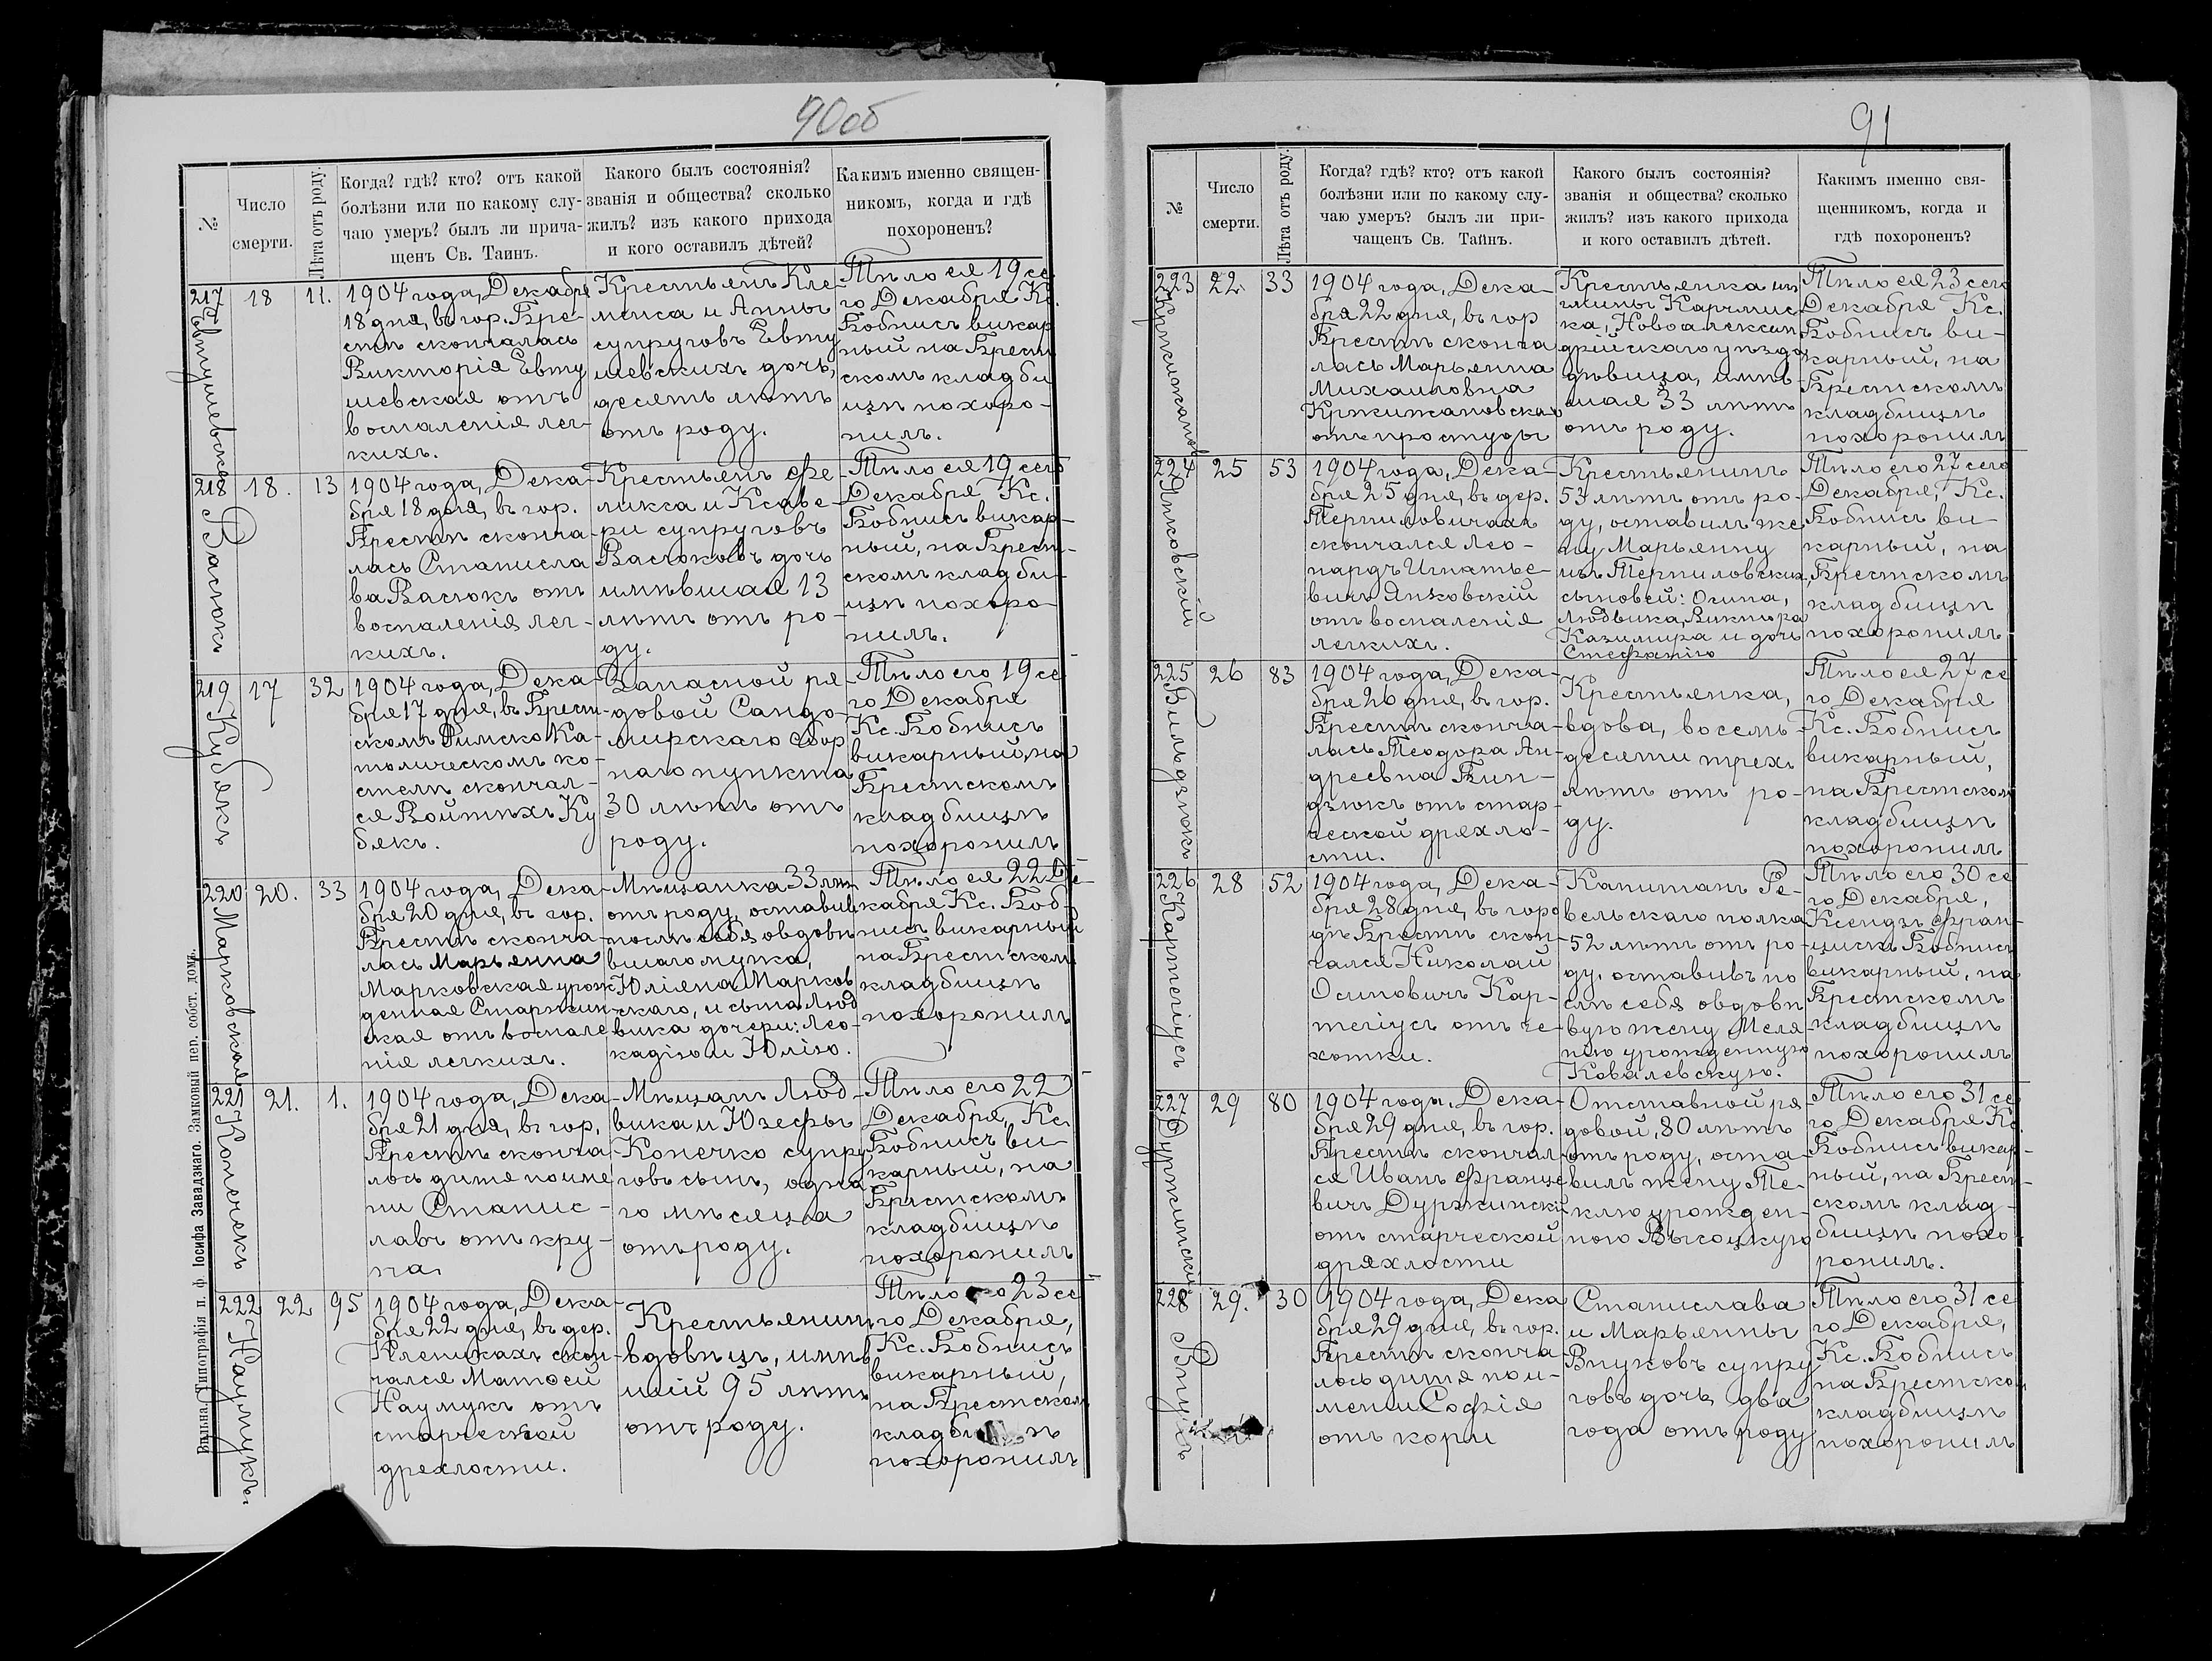 90об
№
Число
смерти.
Лѣта отъ роду.
Когда? гдѣ? кто? отъ какой
болѣзни или по какому слу-
чаю умеръ? былъ ли прича-
щенъ Св. Таинъ.
Какого былъ состоянія?
званія и общества? сколько
жилъ? изъ какого прихода
и кого оставилъ дѣтей?
Какимъ именно священ-
никомъ, когда и гдѣ
похороненъ?
217
Евтушевская
18
11.
1904 года, Декабря
18 дня, въ гор. Бре-
стѣ скончалась
Викторія Евту
шевская отъ
воспаленія лег-
кихъ.
Крестьянъ Кле-
менса и Анны
супруговъ Евту
шевскихъ дочь,
десять лѣтъ
отъ роду.
Тѣло ея 19 се
го Декабря Кс.
Бобнисъ викар
ный на Брест
скомъ кладби
щѣ похоро-
нилъ.
218
Васюкъ
18.
13
1904 года, Дека-
бря 18 дня, въ гор.
Брестѣ сконча-
лась Станисла
ва Васюкъ отъ
воспаленія лег-
кихъ.
Крестьянъ Фе-
ликса и Ксаве-
ри супруговъ
Васюковъ дочь
имѣвшая 13
лѣтъ отъ ро-
ду.
Тѣло ея 19 сего
Декабря Кс.
Бобнисъ викар-
ный, на Брест-
скомъ кладби-
щѣ похоро-
нилъ.
219
Кубякъ
17
32
1904 года, Дека-
бря 17 дня, въ Брест-
скомъ Римско Ка-
толическомъ ко-
стелѣ скончал-
ся Войтѣхъ Ку
бякъ.
Запасной ря-
довой Сандо-
мирскаго сбор
наго пункта
30 лѣтъ отъ
роду.
Тѣло его 19 се
го Декабря
Кс. Бобнисъ
викарный, на
Брестскомъ
кладбищѣ
похоронилъ
220
Марковская
20.
33
1904 года, Дека-
бря 20 дня, въ гор.
Брестѣ сконча-
лась Марьянна
Марковская урож
денная Старжин-
ская отъ воспале
нія легкихъ.
Мѣщанка 33 лѣт
отъ роду, оставив
послѣ себя овдовѣ
вшаго мужа,
Юліяна Марков
скаго, и сына Люд
вика дочери: Лео-
кадію и Юлію.
Тѣло ея 22 Де-
кабря Кс. Боб-
нисъ викарный
на Брестском
кладбищѣ
похоронилъ
221
Конечекъ
21.
1.
1904 года, Дека-
бря 21 дня, въ гор.
Брестѣ сконча
лось дитя по име
ни Станис-
лавъ отъ кру-
па.
Мѣщанъ Люд-
вика и Юзефы
Конечко супру
говъ сынъ, одна
го мѣсяца
отъ роду.
Тѣло его 22
Декабря, Кс.
Бобнисъ ви-
карный, на
Брестскомъ
кладбищѣ
похоронилъ
222
Наумукъ.
22
95
1904 года, Дека-
бря 22 дня, въ дер.
Клениках скон-
чался Матѳей
Наумукъ отъ
старческой
дряхлости.
Крестьянин
вдовецъ, имѣв
шій 95 лѣтъ
отъ роду.
Тѣло его 23 се
го Декабря,
Кс. Бобнисъ
викарный,
на Брестском
кладбищѣ
похоронилъ
Вильна. Типографія п. ф. Іосифа Завадзкаго. Замковый пер. собст. домъ.
91
№
Число
смерти.
Лѣта отъ роду.
Когда? гдѣ? кто? отъ какой
болѣзни или по какому слу-
чаю умеръ? былъ ли при-
чащенъ Св. Тайнъ.
Какого былъ состоянія?
званія и общества? сколько
жилъ? изъ какого прихода
и кого оставилъ дѣтей.
Какимъ именно свя-
щенникомъ, когда и
гдѣ похороненъ?
223
22.
33
1904 года, Дека-
бря 22 дня, въ гор
Брестѣ сконча
лась Марьянна
Михаиловна
Кржижановская
отъ простуды
Крестьянка
гмины Карчмис
ка, Новоалексан
дрійскаго уѣзда
дѣвица, имѣв-
шая 33 лѣтъ
отъ роду.
Тѣло ея 23 сего
Декабря Кс.
Бобнисъ ви-
карный, на
Брестскомъ
кладбищѣ
похоронилъ
224
Янковскій
25
53
1904 года, Дека-
бря 25 дня, въ дер.
Терпиловичахъ
скончался Лео-
нардъ Игнатье-
вичъ Янковскій
отъ воспаленія
легкихъ.
Крестьянинъ
53 лѣтъ отъ ро-
ду, оставилъ же
ну Марьянну
изъ Терпиловских
сыновей: Осипа,
Людвика, Виктора
Казимира и дочь
Стефанію
Тѣло его 27 сего
Декабря, Кс.
Бобнисъ ви-
карный, на
Брестскомъ
кладбищѣ
похоронилъ
225
26
83
1904 года, Дека-
бря 26 дня, въ гор.
Брестѣ сконча-
лась Теодора Ан-
дреевна Бин-
дзюкъ отъ стар-
ческой дряхло-
сти.
Крестьянка,
вдова, восемь-
десяти трехъ
лѣтъ отъ ро-
ду.
Тѣло ея 27 се
го Декабря
Кс. Бобнисъ
викарный,
на Брестском
кладбищѣ
похоронилъ
226
Картеніусъ
28
52
1904 года, Дека-
бря 28 дня, въ горо
дѣ Брестѣ скон-
чался Николай
Осиповичъ Кар-
теніусъ отъ ча-
хотки.
Капитанъ Ре-
вельскаго полка
52 лѣтъ отъ ро-
ду. оставивъ по
слѣ себя овдовѣ
вую жену Меля-
нію урожденную
Ковалевскую.
Тѣло его 30 се
го Декабря,
Ксендзъ Фран-
цискъ Бобнисъ
викарный, на
Брестскомъ
кладбищѣ
похоронилъ
227
Дуржинскій
29
80
1904 года. Дека-
бря 29 дня, въ гор.
Брестѣ скончал
ся Иванъ Францe
вичъ Дуржинскій
отъ старческой
дряхлости
Отставной ря-
довой, 80 лѣтъ
отъ роду, оста-
вилъ жену Те-
клю урожден-
ною Высоцкую
Тѣло его 31 се
го Декабря Кс.
Бобнисъ викар-
ный, на Брест-
скомъ клад-
бищѣ похо
ронилъ.
228
Внукъ
29.
30
1904 года, Дека
бря 29 дня, въ гор.
Брестѣ сконча-
лось дитя по и-
мени Софія
отъ кори
Станислава
и Марьянны
Внуковъ супру
говъ дочь, два
года отъ роду
Тѣло его 31 се
го Декабря,
Кс. Бобнисъ
на Брестском
кладбищѣ
похоронилъ